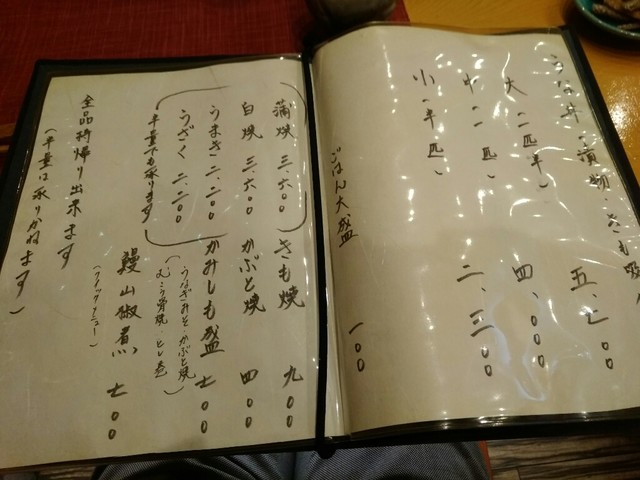 うな丼(漬物・きも吸
大(一匹半) 五、七〇〇
中(一匹) 四、〇〇〇
小(半匹) 二、三〇〇
ごはん大盛 一〇〇
蒲焼 三、六〇〇
白焼 三、六〇〇
うまき 二、二〇〇
うざく 二、二〇〇
半量でも承ります
きも焼 九〇〇
かぶと焼 四〇〇
かみしも盛 七〇〇
(うなぎみそ・かぶと焼
ヒレ巻)
鰻山椒煮 七〇〇
(クイックメニュー)
全品持帰り出来ます
(半量は承りかねます)